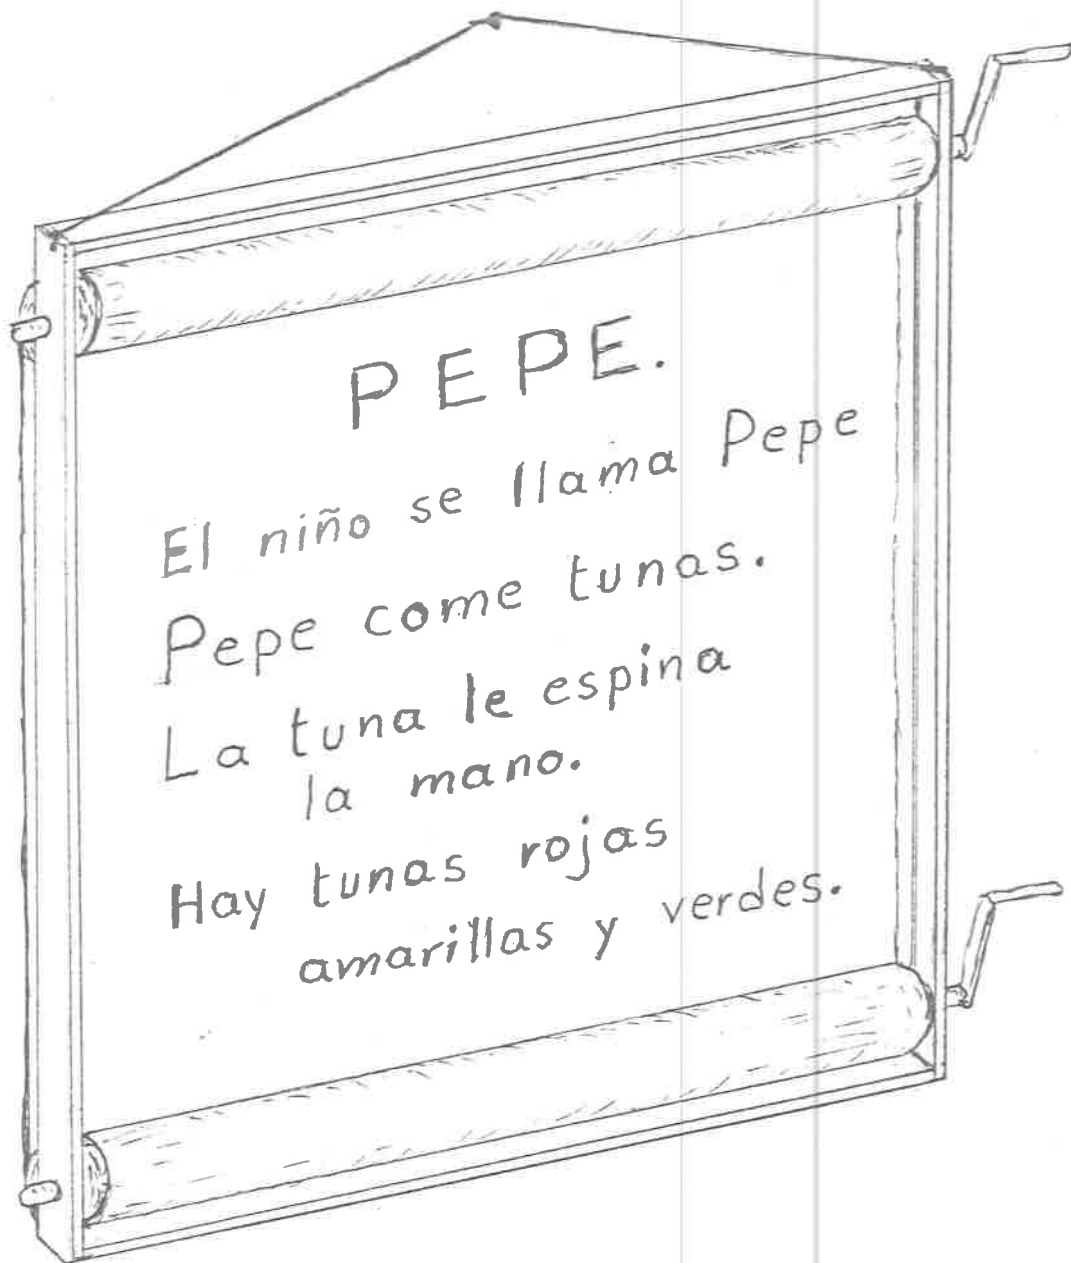 PEPE.
El niño se llama Pepe
Pepe come tunas.
La tuna le espina
la mano.
Hay tunas rojas
amarillas y verdes.